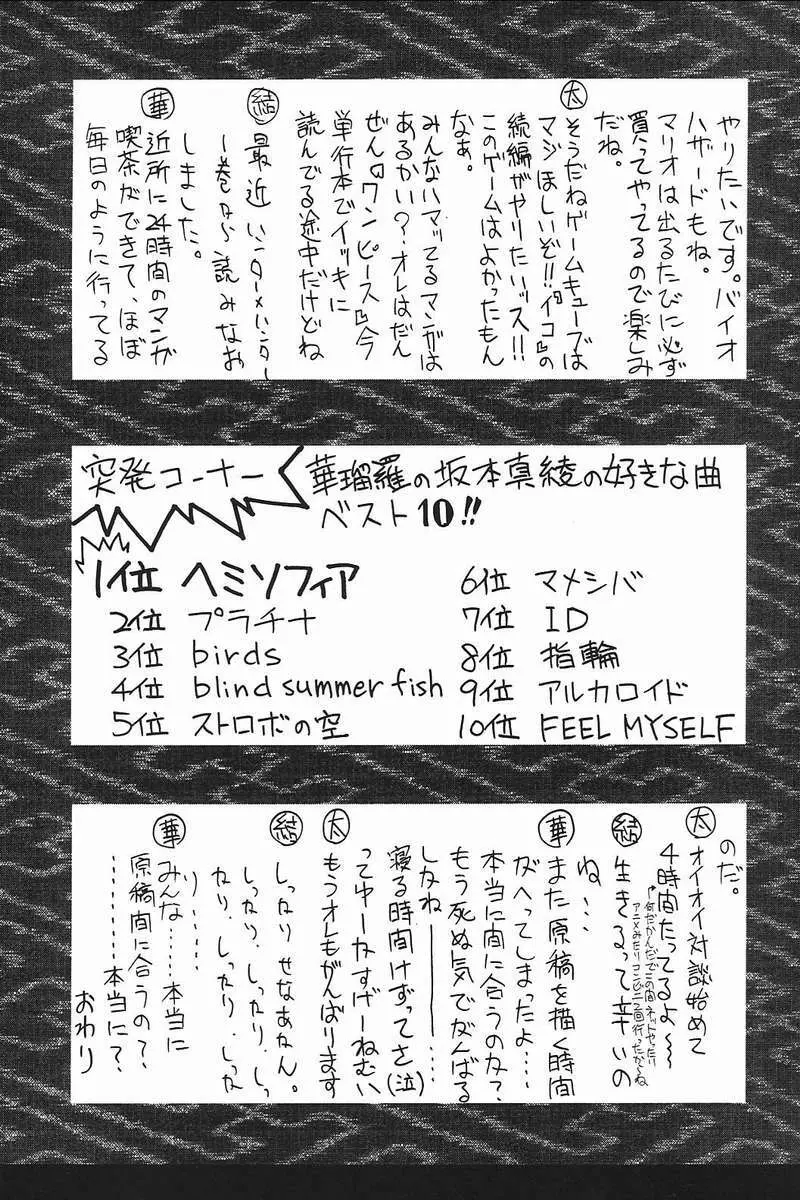 やりたいです。バイオ
ハザードもね。
マリオは出るたびに必ず
買ってやってるので楽しみ
だね。
太 そうだねゲームキューブでは
マジほしいぞ!!『イコ』の
続編がやりたいッス!!
このゲームはよかったもん
なぁ。
みんなハマッてるマンガは
あるかい?オレはだん
ぜん『ワンピース』今
単行本でイッキに
読んでる途中だけどね
結 最近ハンター×ハンター
1巻から読みなお
しました。
華 近所に24時間のマンガ
喫茶ができて、ほぼ
毎日のように行ってる
突発コーナー
華瑠羅の坂本真綾の好きな曲
ベスト10!!
1位 ヘミソフィア
2位 プラチナ
3位 birds
4位 blind summer fish
5位 ストロボの空
6位 マメシバ
7位 ID
8位 指輪
9位 アルカロイド
10位 FEEL MYSELF
のだ。
太 オイオイ対談始めて
4時間たってるよ〜〜
何だかんだでこの間ネットやったり
アニメみたりコンビニ2回行ったからね
結 生きるって辛いの
ね…
華 また原稿を描く時間
がへってしまったよ…
本当に間に合うのか?
もう死ぬ気でがんばる
しかね――――…
寝る時間けずってさ(泣)
ってゆーかすげーねむい
太 もうオレもがんばります
結 しっかりせなあかん。
しっかり、しっかり、しっ
かり、しっかり、しっか
り………
華 みんな……本当に
原稿間に合うの?
………本当に?
おわり